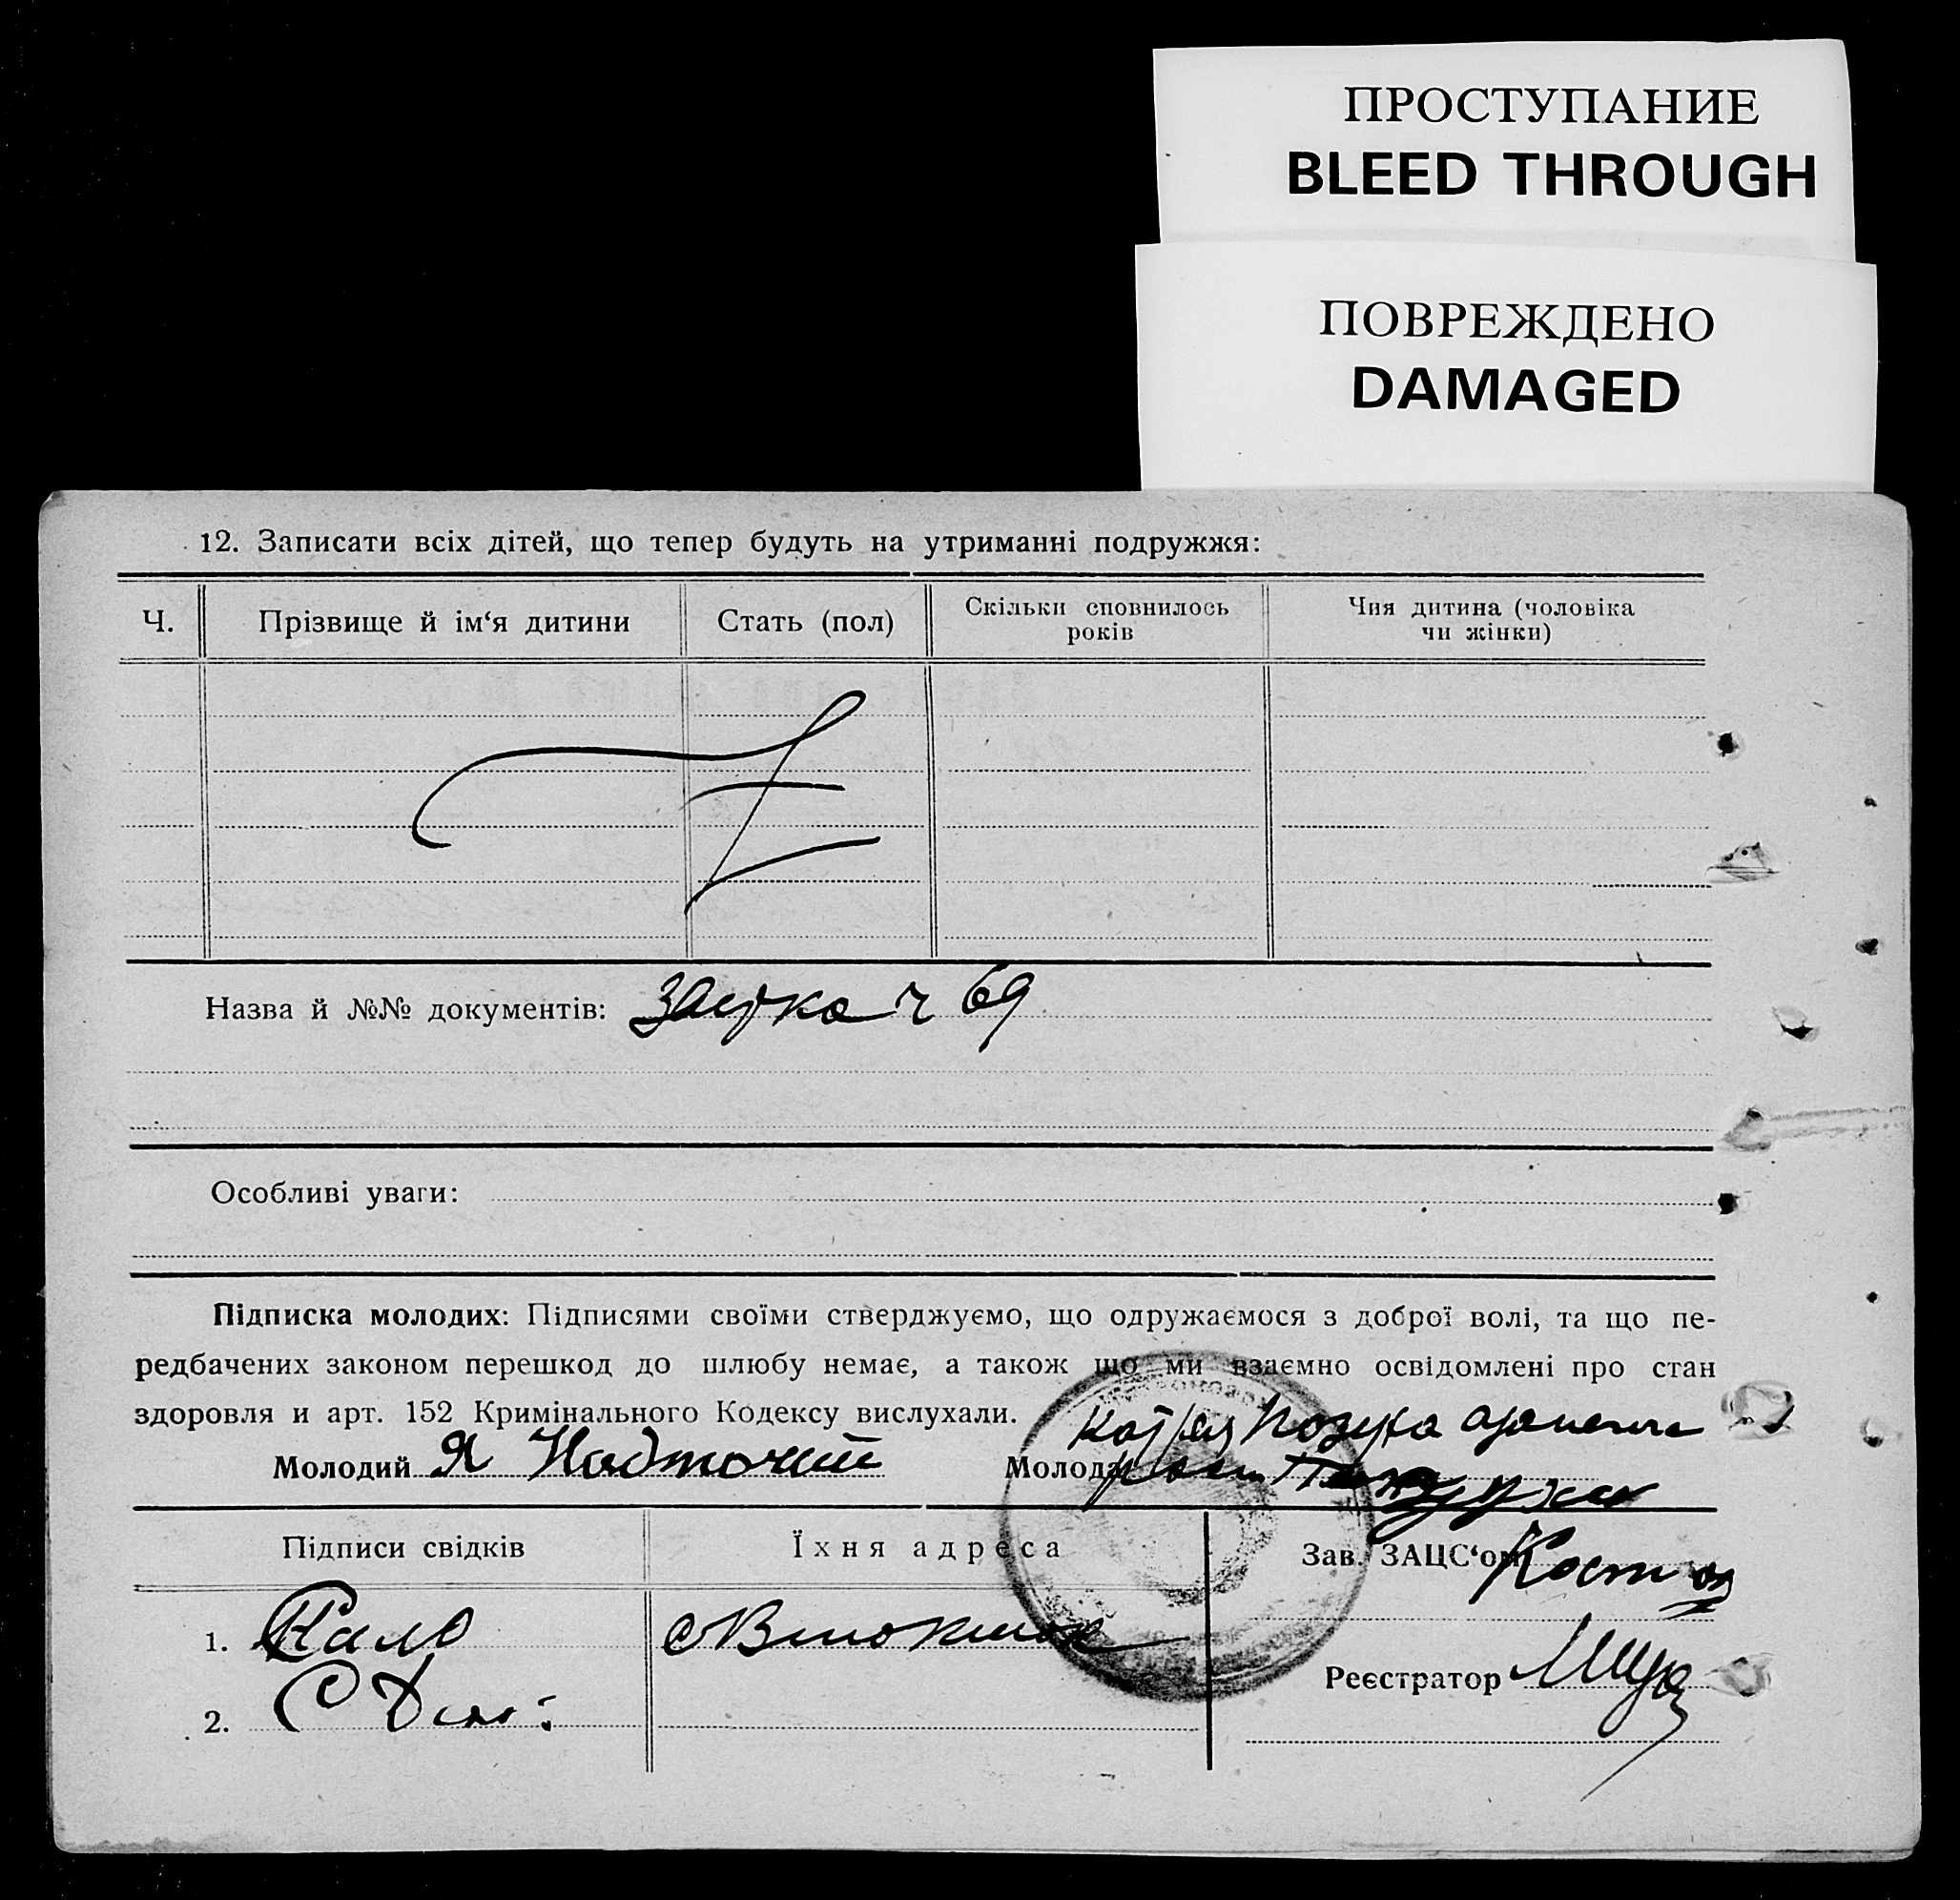 ПРОСТУПАНИЕ
BLEED THROUGH
ПОВРЕЖДЕНО
DAMAGED
12. Записати всіх дітей, що тепер будуть на утриманні подружжя:
Ч.
Прізвище й ім‘я дитини
Стать (пол)
Скільки сповнилось
років
Чия дитина (чоловіка
чи жінки)
Назва й №№ документів: ч 69
Особливі уваги:
Підписка молодих: Підписями своїми стверджуємо, що одружаємося з доброї волі, та що пе-
редбачених законом перешкод до шлюбу немає, а також що ми взаємно освідомлені про стан
здоровля и арт. 152 Кримінального Кодексу вислухали.
Молодий Я Надточий
Молода
Підписи свідків
Їхня адреса
Зав. ЗАЦС‘ом
1.
Реєстратор
2.